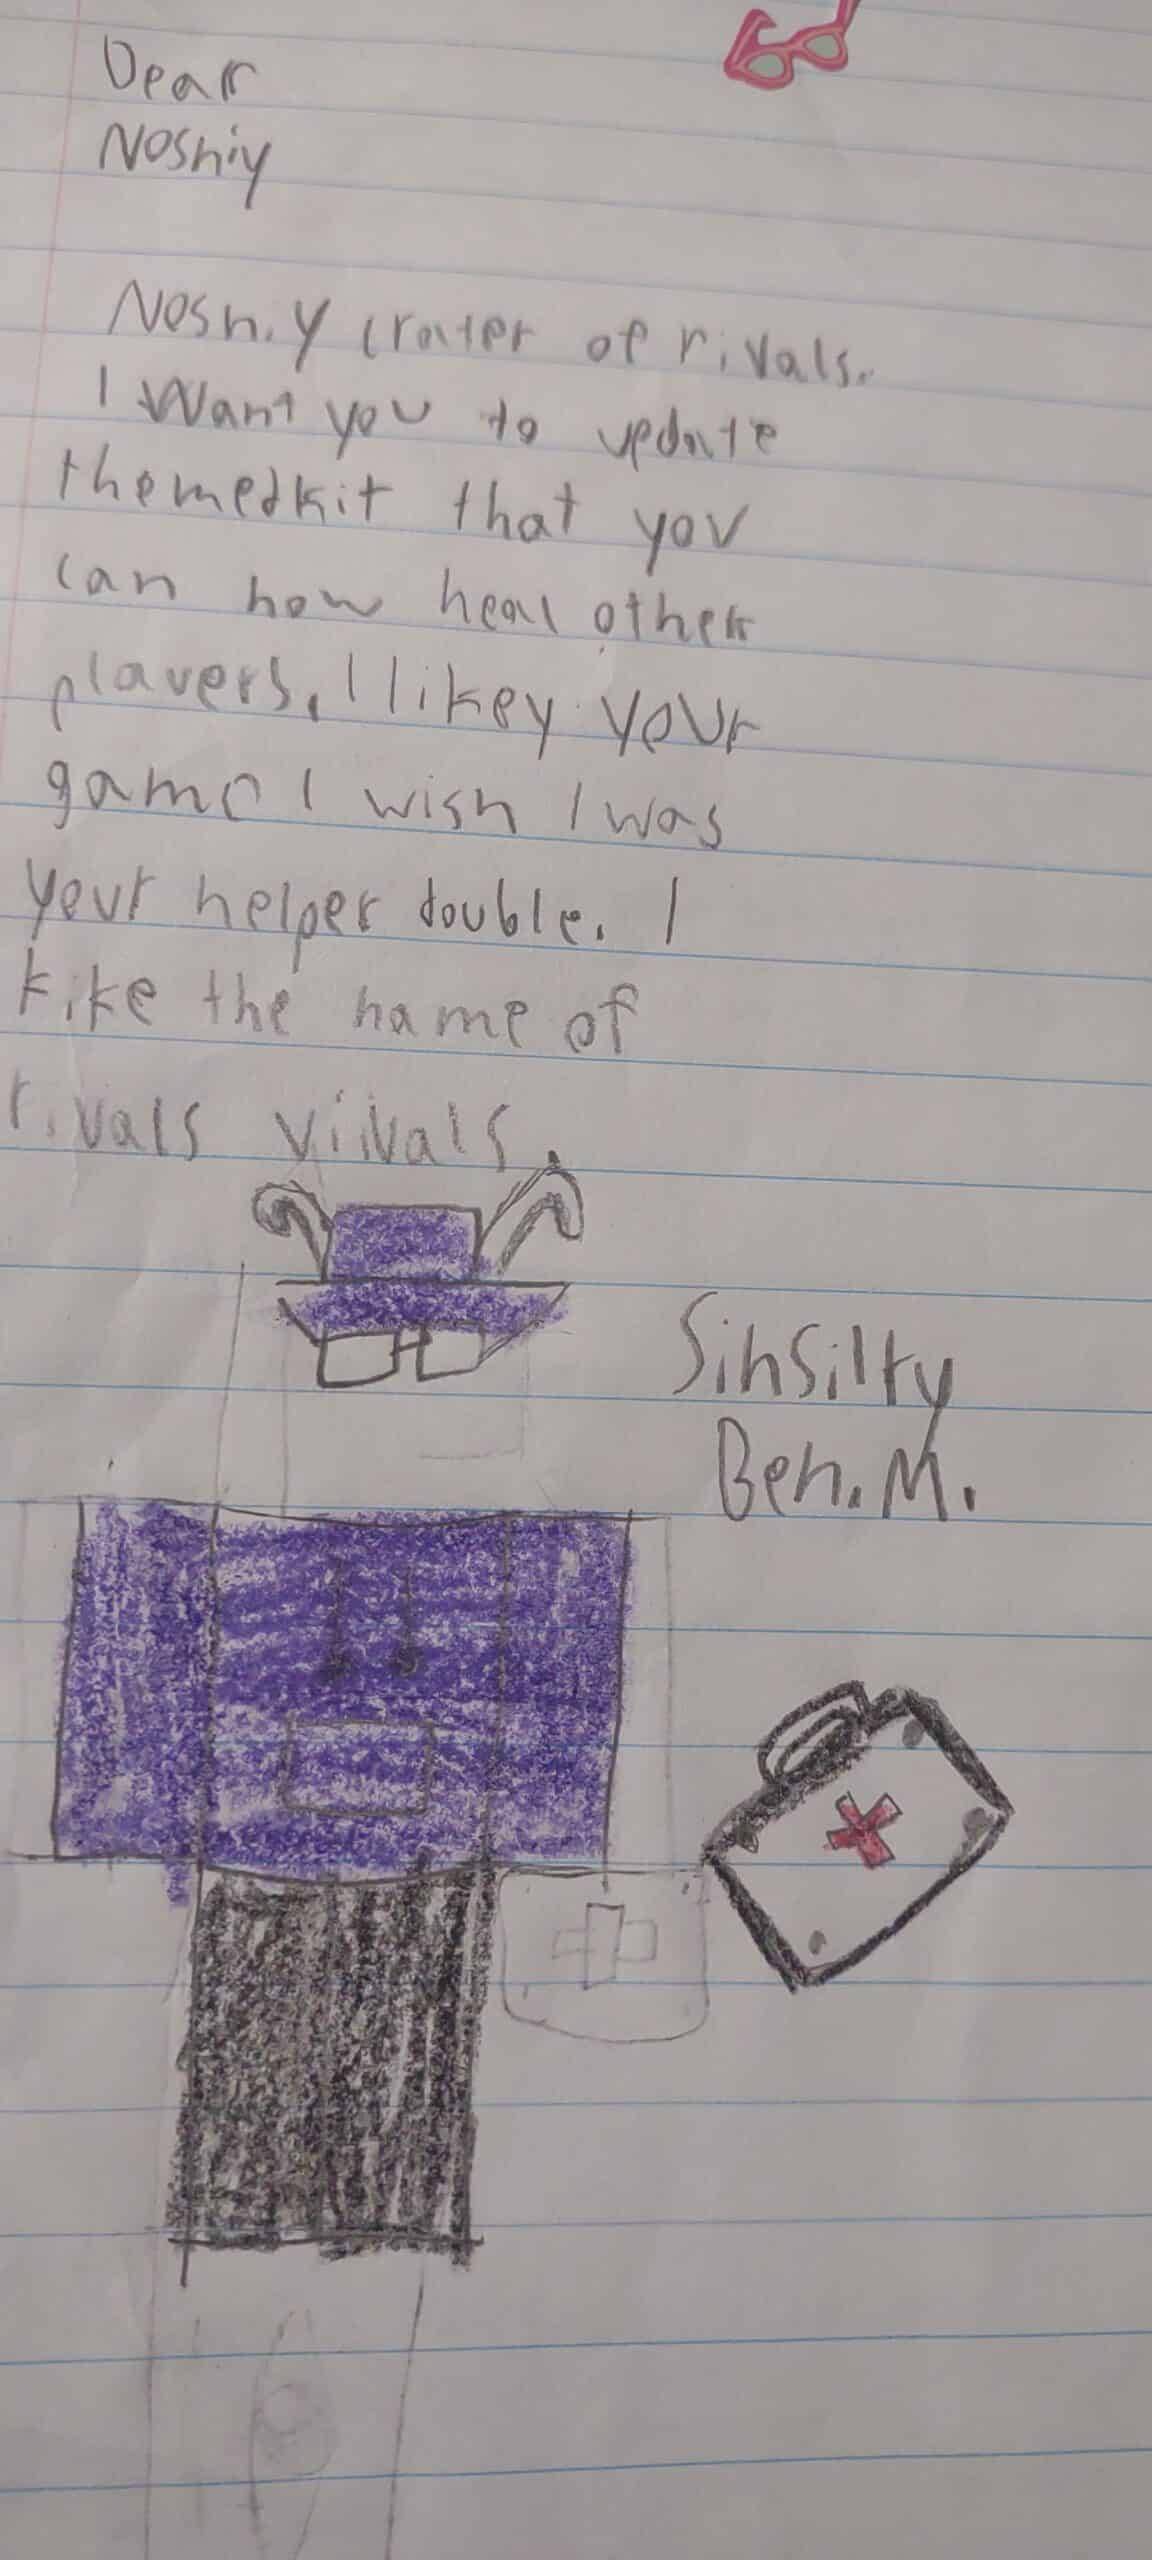 Dear
Nosniy
Nosn.y crater of rivals.
I Want you to update
themedkit that you
can now heal other
players, I likey your
game I wish I was
your helper double. I
kike the name of
rivals viivals.
Sinsilty
Ben. M.